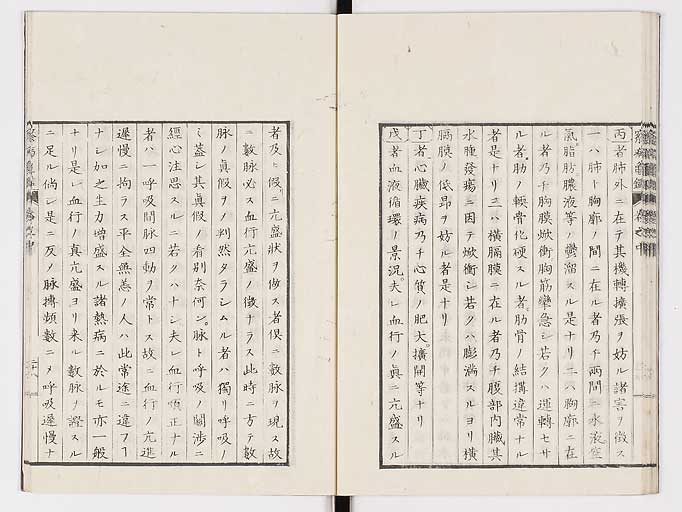 丙者肺外ニ在テ其機轉擴張ヲ妨ル諸害ヲ徴ス
一ハ肺ト胸廓ノ間ニ在ル者乃チ兩間ニ水液空
氣脂肪膿液等ノ鬱溜スル是ナリ二ハ胸廓ニ在
ル者乃チ胸膜焮衝胸筋攣急シ若クハ運轉セサ
ル者肋ノ軟骨化硬スル者肋骨ノ結搆違常ナル
者是ナリ三ハ横膈膜ニ在ル者乃チ腹部内臓其
水腫發瘍ニ因テ焮衝シ若クハ膨滿スルヨリ横
膈膜ノ低昂ヲ妨ル者是ナリ
丁者心臓疾病乃チ心質ノ肥大擴開等ナリ
戊者血液循環ノ景况夫レ血行ノ眞ニ亢盛スル
者及ヒ假ニ亢盛狀ヲ做ス者俱ニ數脉ヲ現ス故
ニ數脉必ス血行亢盛ノ徴ナラス此時ニ方テ數
脉ノ眞假ヲノ判然タラシムル者ハ獨リ呼吸ノ
ミ蓋シ其眞假ノ看別奈何ン脉ト呼吸ノ關渉ニ
經心注思スルニ若クハナシ夫レ血行順正ナル
者ハ一呼吸間脉四動ヲ常トス故ニ血行ノ亢進
遲慢ニ拘ラス平全無恙ノ人ハ此常途ニ違フヿ
ナシ加之生力增盛スル諸熱病ニ於ルモ亦一般
ナリ是レ血行ノ真亢盛ヨリ来ル數脉ノ證スル
ニ足ル倘シ是ニ反ノ脉搏頻數ニメ呼吸遲慢ナ
二十八